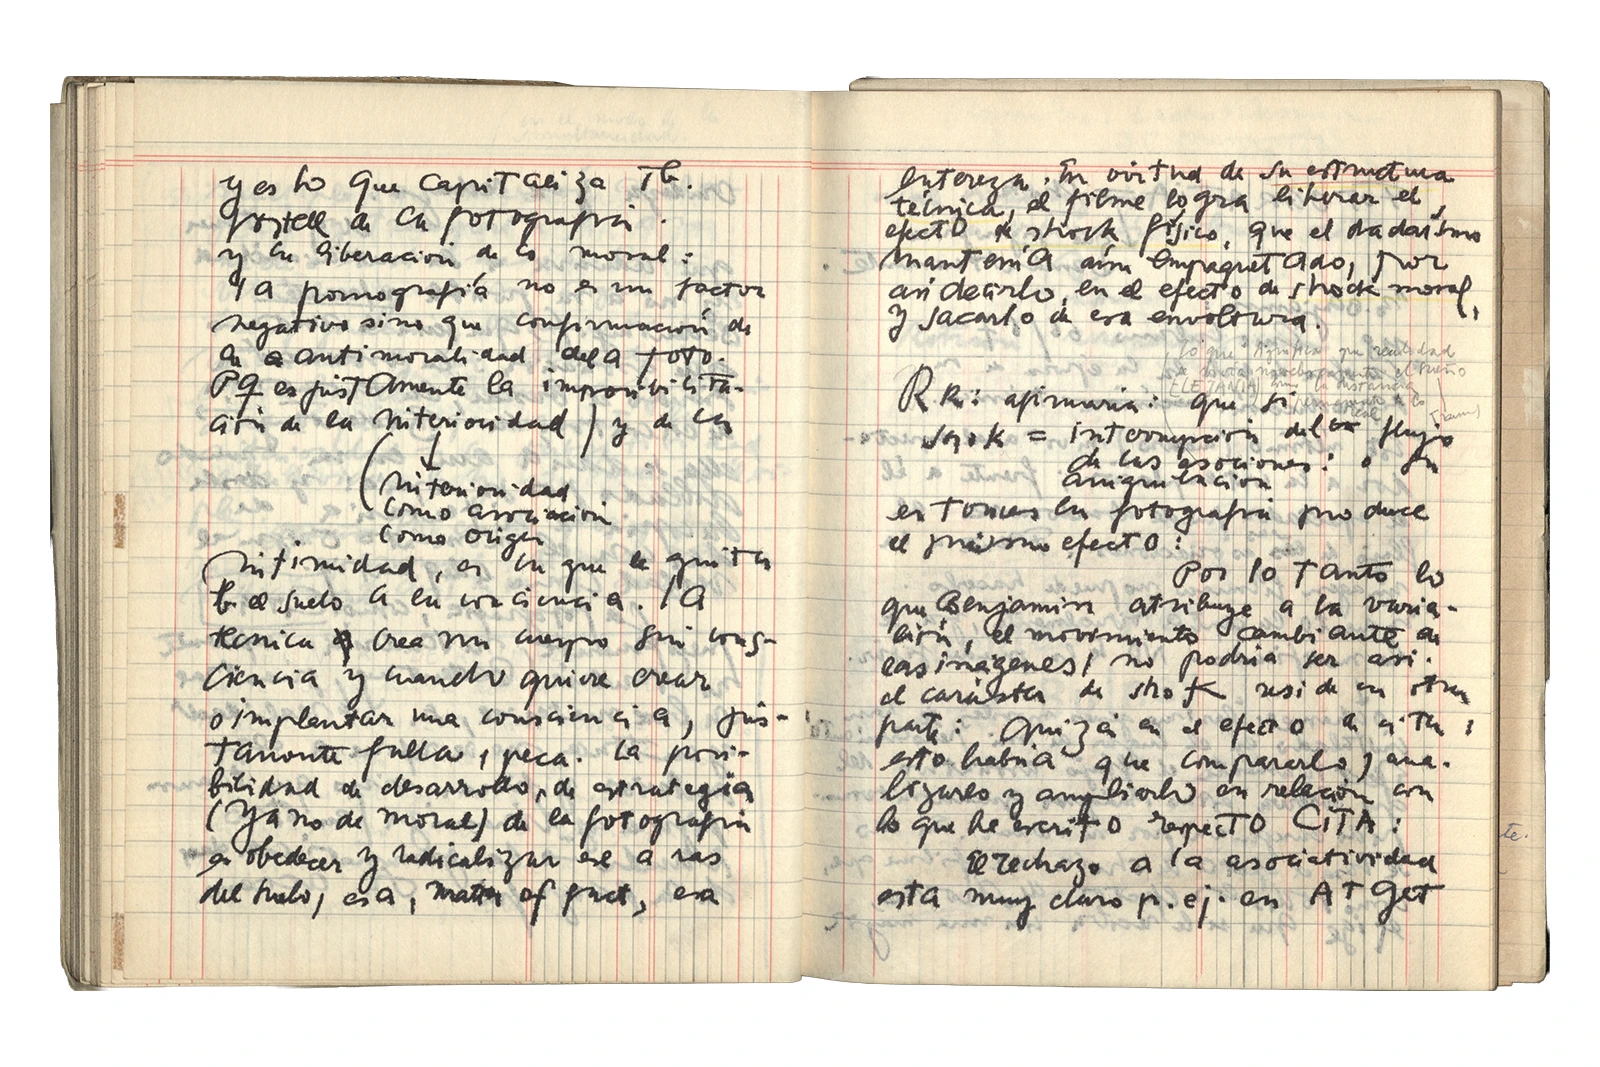 y es lo que capitaliza Tb.
de la fotografía.
y la liberación de lo moral:
la pornografía no es un factor
negativo sino que confirmación de
la antimoralidad de la foto.
Pq es justamente la imposibilita-
ción de la interioridad / y de la
(interioridad
como asociación
como origen
intimidad, es lo que le quita
el suelo a la conciencia. La
tecnica crea un cuerpo sin cons-
ciencia y cuando quiere crear
o implantar una consciencia, jus-
tamente falla, peca. La posi-
bilidad de desarrollo, de estrategia
(ya no de moral) de la fotografía
es obedecer y radicalizar ese a ras
del suelo, esa, matter of fact, esa
entereza. En virtud de su estructura
técnica, el filme logra liberar el
efecto de shock físico, que el dadaísmo
mantenía aún empaquetado, por
así decirlo, en el efecto de shock moral,
y sacarlo de esa envoltura.
lo que significa que realidad
el sueño
la distancia
RK: afirmaria: que si
shok = interrupción del flujo
de las asociones: o su
aniquilación
entonces la fotografía produce
el mismo efecto:
Por lo tanto lo
que Benjamin atribuye a la varia-
ción, el movimiento cambiante de
las imágenes, no podría ser así.
el carácter de shok reside en otra
parte: Quizá en el efecto a cita:
esto habría que compararlo, ana-
lizarlo y ampliarlo en relación con
lo que he escrito respecto CITA:
El rechazo a la asociatividad
esta muy claro p. ej. en ATGET
te.